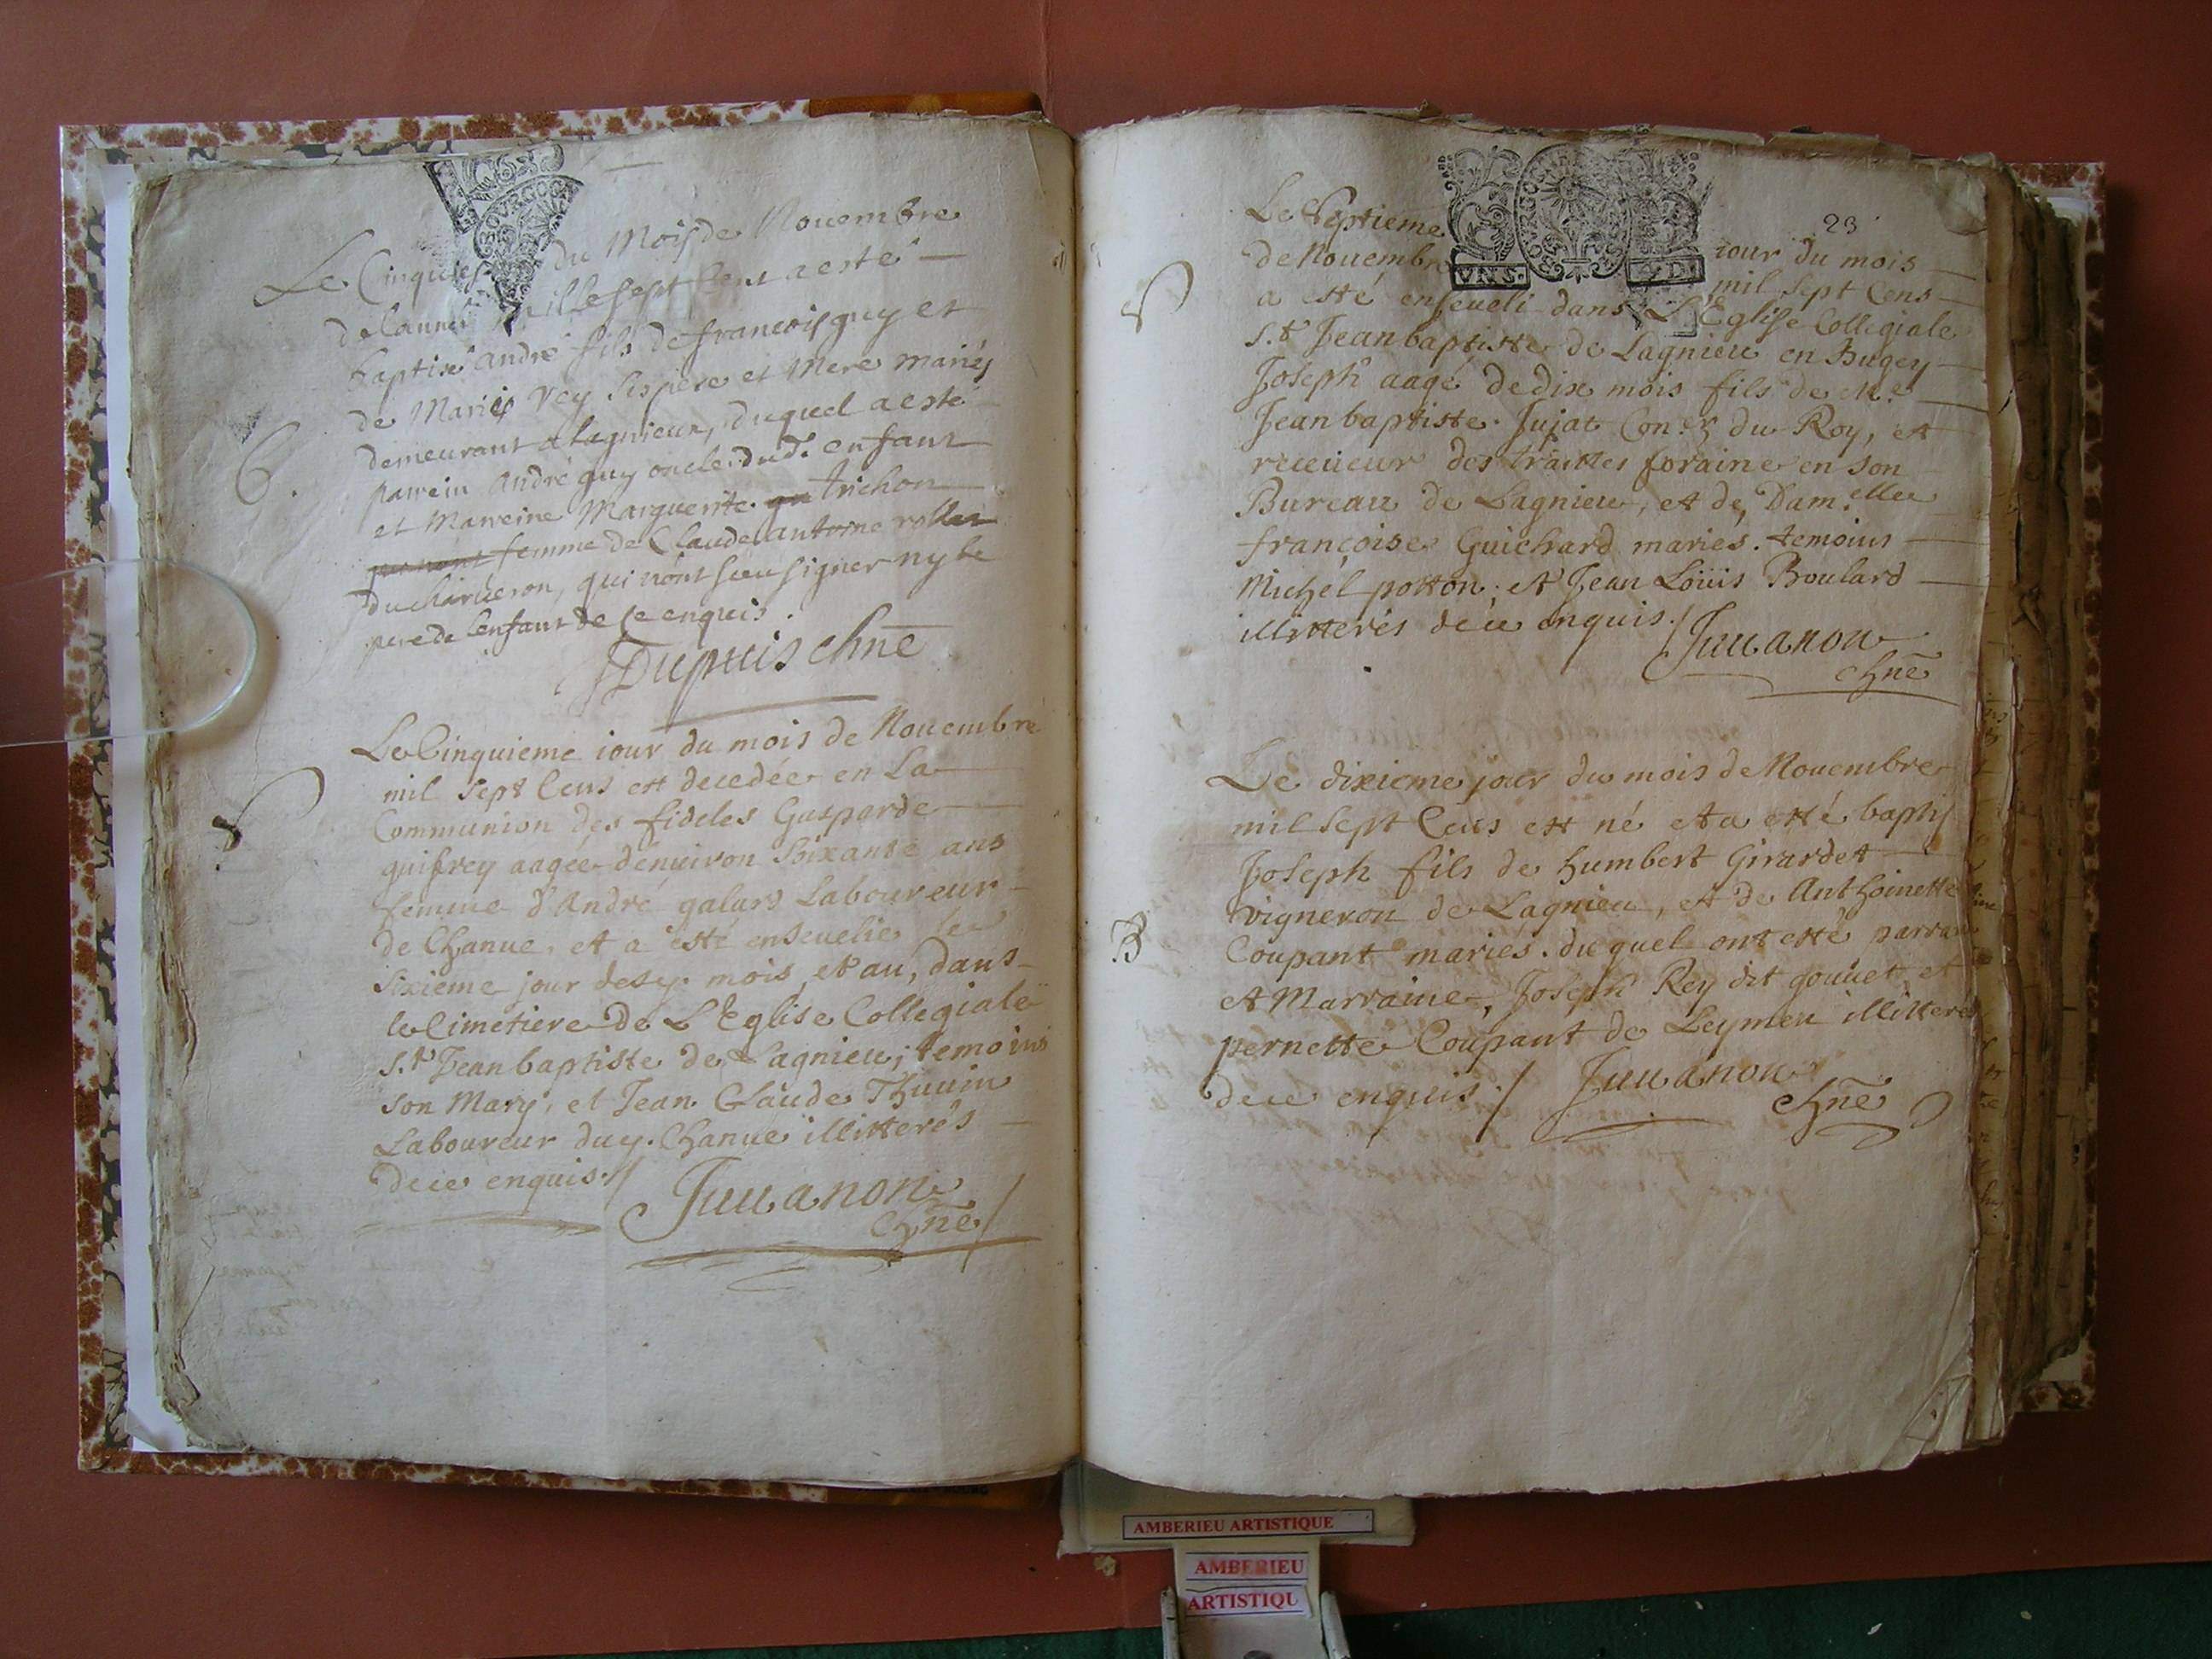 BOURGOG
Le Cinquie du Mois de Nouembre
de lanneé mille sept Cent a esté
baptisé andré fils de francois guy et
de Marie Vey Ses pere et Mere mariés
demeurant a lagnieux, duquel a esté
parrein andré guy oncle dud.t enfant
et Marreine Marguerite trichon
femme de Claude antoine
du charueron, qui n'ont sceu signer ny le
pere de lenfant de ce enquis.
Dupuis chne
Le Cinquieme iour du mois de Nouembre
mil sept Cens est decedée en La
Communion des fideles Gasparde
guifrey aagée d'enuiron Soixante ans
femme d'André galard Laboureur
de Chanue, et a esté enseuelie le
Sixieme jour desd. mois et an, dans
le Cimetiere de L'Eglise Collegiale
S.t Jean baptiste de Lagnieu; temoins
son Mary, et Jean Claude Thuuin
Laboureur dud. Chanue illitterés
dece enquis./
Juuanon
chne/
23
BOURGOG
VNS. 4.D.
Le Septieme iour du mois
de Nouembre mil sept Cens
a esté enseueli dans L'Eglise Collegiale
S.t Jean baptiste de Lagnieu en Bugey
Joseph aagé de dix mois fils de M.e
Jean baptiste Jujat Con.er du Roy, et
receueur des traittes foraine en son
Bureau de Lagnieu, et de Dam.elle
françoise Guichard mariés. temoins
Michel potton; et Jean Loüis Boulard
illitterés dece enquis./
Juuanon
chne
Le dixieme jour du mois de Nouembre
mil sept Cens est né et a esté baptis
Joseph fils de humbert Girardet
B
vigneron de Lagnieu, et de Anthoinette
Coupant mariés. duquel ont esté parrain
et Marraine, Joseph Rey dit gouuet et
pernette Coupant de Leymen illitteres
dece enquis./ Juuanon
chne
AMBERIEU ARTISTIQUE
AMBERIEU
ARTISTIQU